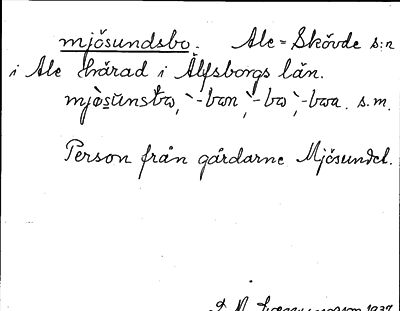 mjösundsbo. Ale=Skövde s:n
i Ale härad i Älfsborgs län.
-bon -bo -boa. s.m.
Person från gårdarne Mjösundet.
1937